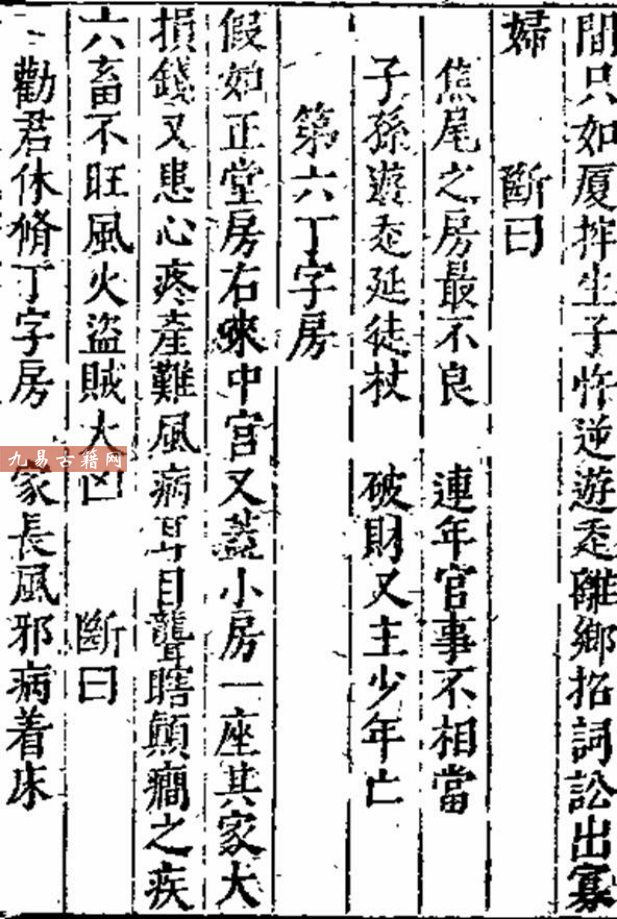 間只如厦𢫬生子忤逆遊赱離鄉招詞訟出寡
婦　斷曰
焦尾之房最不良　連年官事不相當
子孫遊赱延徒杖　破財又主少年亡
第六丁字房
假如正堂房右來中宮又蓋小房一座其家大
損錢又患心疼產難風病耳目聾瞎顛癎之疾
六畜不旺風火盜賊大凶　斷曰
勸君休脩丁字房　家長風邪病着床
九易古籍网